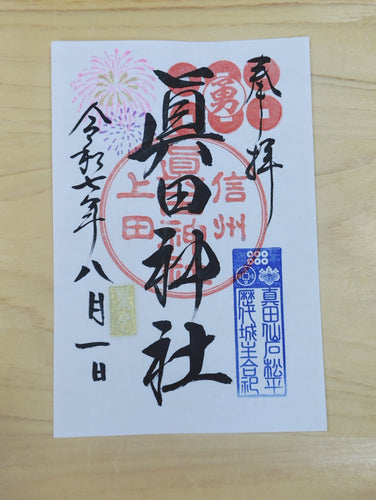 奉拝
勇
信州
上田
眞田神社
真田仙石松平
歴代城主合祀
令和七年八月一日